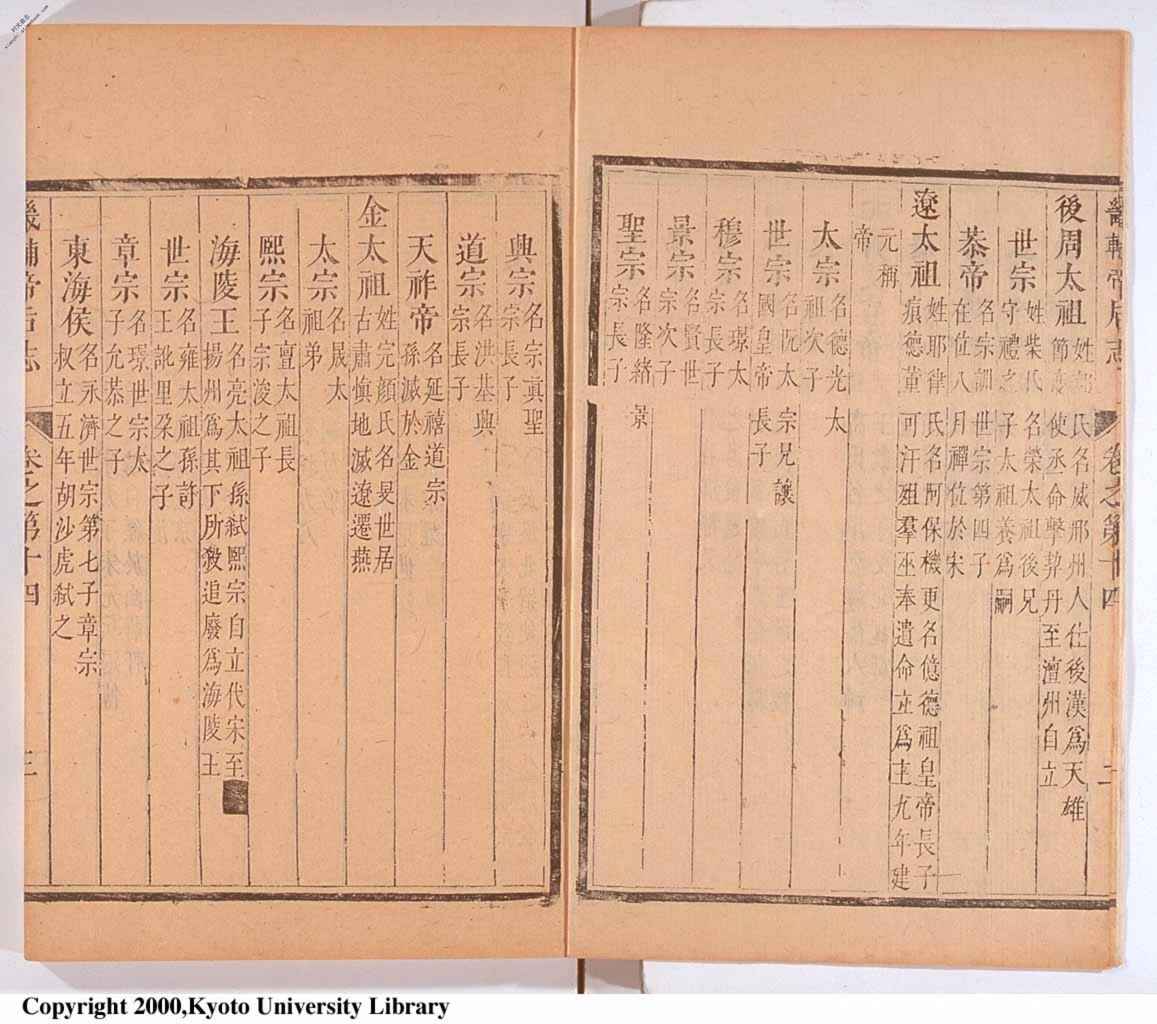 畿輔帝后志 卷之第十四 二
後周太祖 姓郭氏名威那州人仕後漢為天雄
節度使承命擊契丹至澶州自立
世宗 姓柴氏名榮太祖後兄
守禮之子太祖養為嗣
恭帝 名宗訓世宗第四子
在位八月禪位於宋
遼太祖 姓耶律氏名阿保機更名億德祖皇帝長子
痕德董可汗殂羣巫奉遺命立為主九年建
元稱
帝
太宗 名德光太
祖次子
世宗 名阮太宗兄讓
國皇帝長子
穆宗 名璟太
宗長子
景宗 名賢世
宗次子
聖宗 名隆緒景
宗長子
興宗 名宗真聖
宗長子
道宗 名洪基興
宗長子
天祚帝 名延禧道宗
孫滅於金
金太祖 姓完顏氏名旻世居
古肅慎地滅遼遷燕
太宗 名晟太
祖弟
熙宗 名亶太祖長
子宗浚之子
海陵王 名亮太祖孫弑熙宗自立代宋至
揚州為其下所殺追廢為海陵王
世宗 名雍太祖孫許
王訛里朶之子
章宗 名璟世宗太
子允恭之子
東海侯 名永濟世宗第七子章宗
叔立五年胡沙虎弑之
畿輔帝后志 卷之第十四 三
Copyright 2000,Kyoto University Library